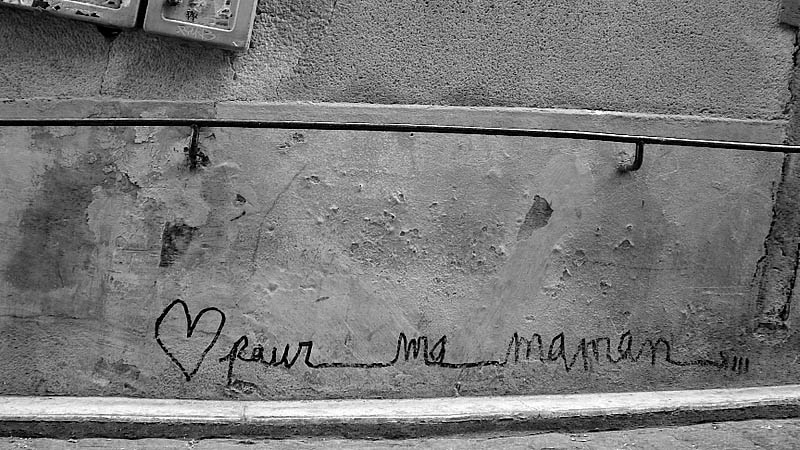 pour ma maman